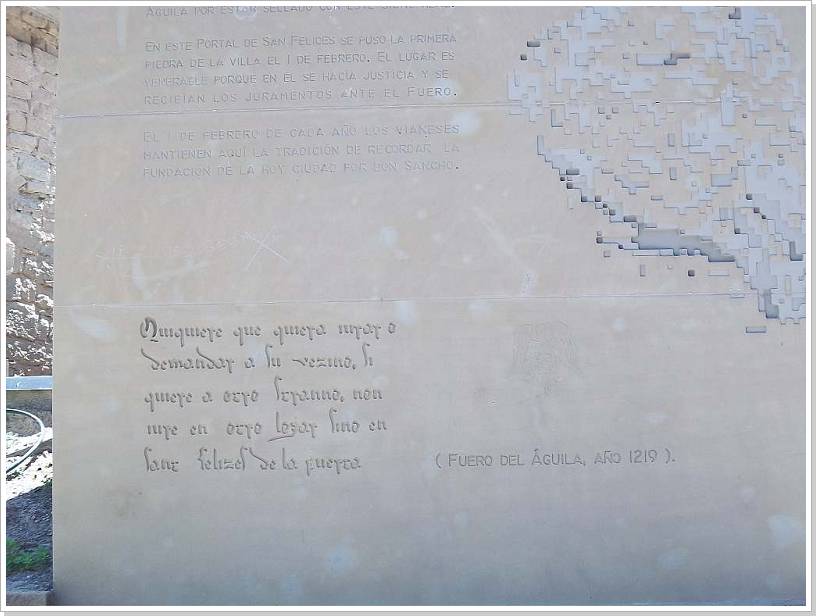 ÁGUILA POR ESTAR SELLADO CON ESTE SIGNO REAL.
EN ESTE PORTAL DE SAN FELICES SE PUSO LA PRIMERA
PIEDRA DE LA VILLA EL 1 DE FEBRERO. EL LUGAR ES
VENERABLE PORQUE EN EL SE HACÍA JUSTICIA Y SE
RECIBÍAN LOS JURAMENTOS ANTE EL FUERO.
EL 1 DE FEBRERO DE CADA AÑO LOS VIANESES
MANTIENEN AQUÍ LA TRADICIÓN DE RECORDAR LA
FUNDACIÓN DE LA HOY CIUDAD POR DON SANCHO.
Quiquiere que quiera iurar o
demandar a su vezino, si
quiere a otro stranno, non
iure en otro logar sino en
sant Felizes de la puerta
( FUERO DEL ÁGUILA, AÑO 1219 ).